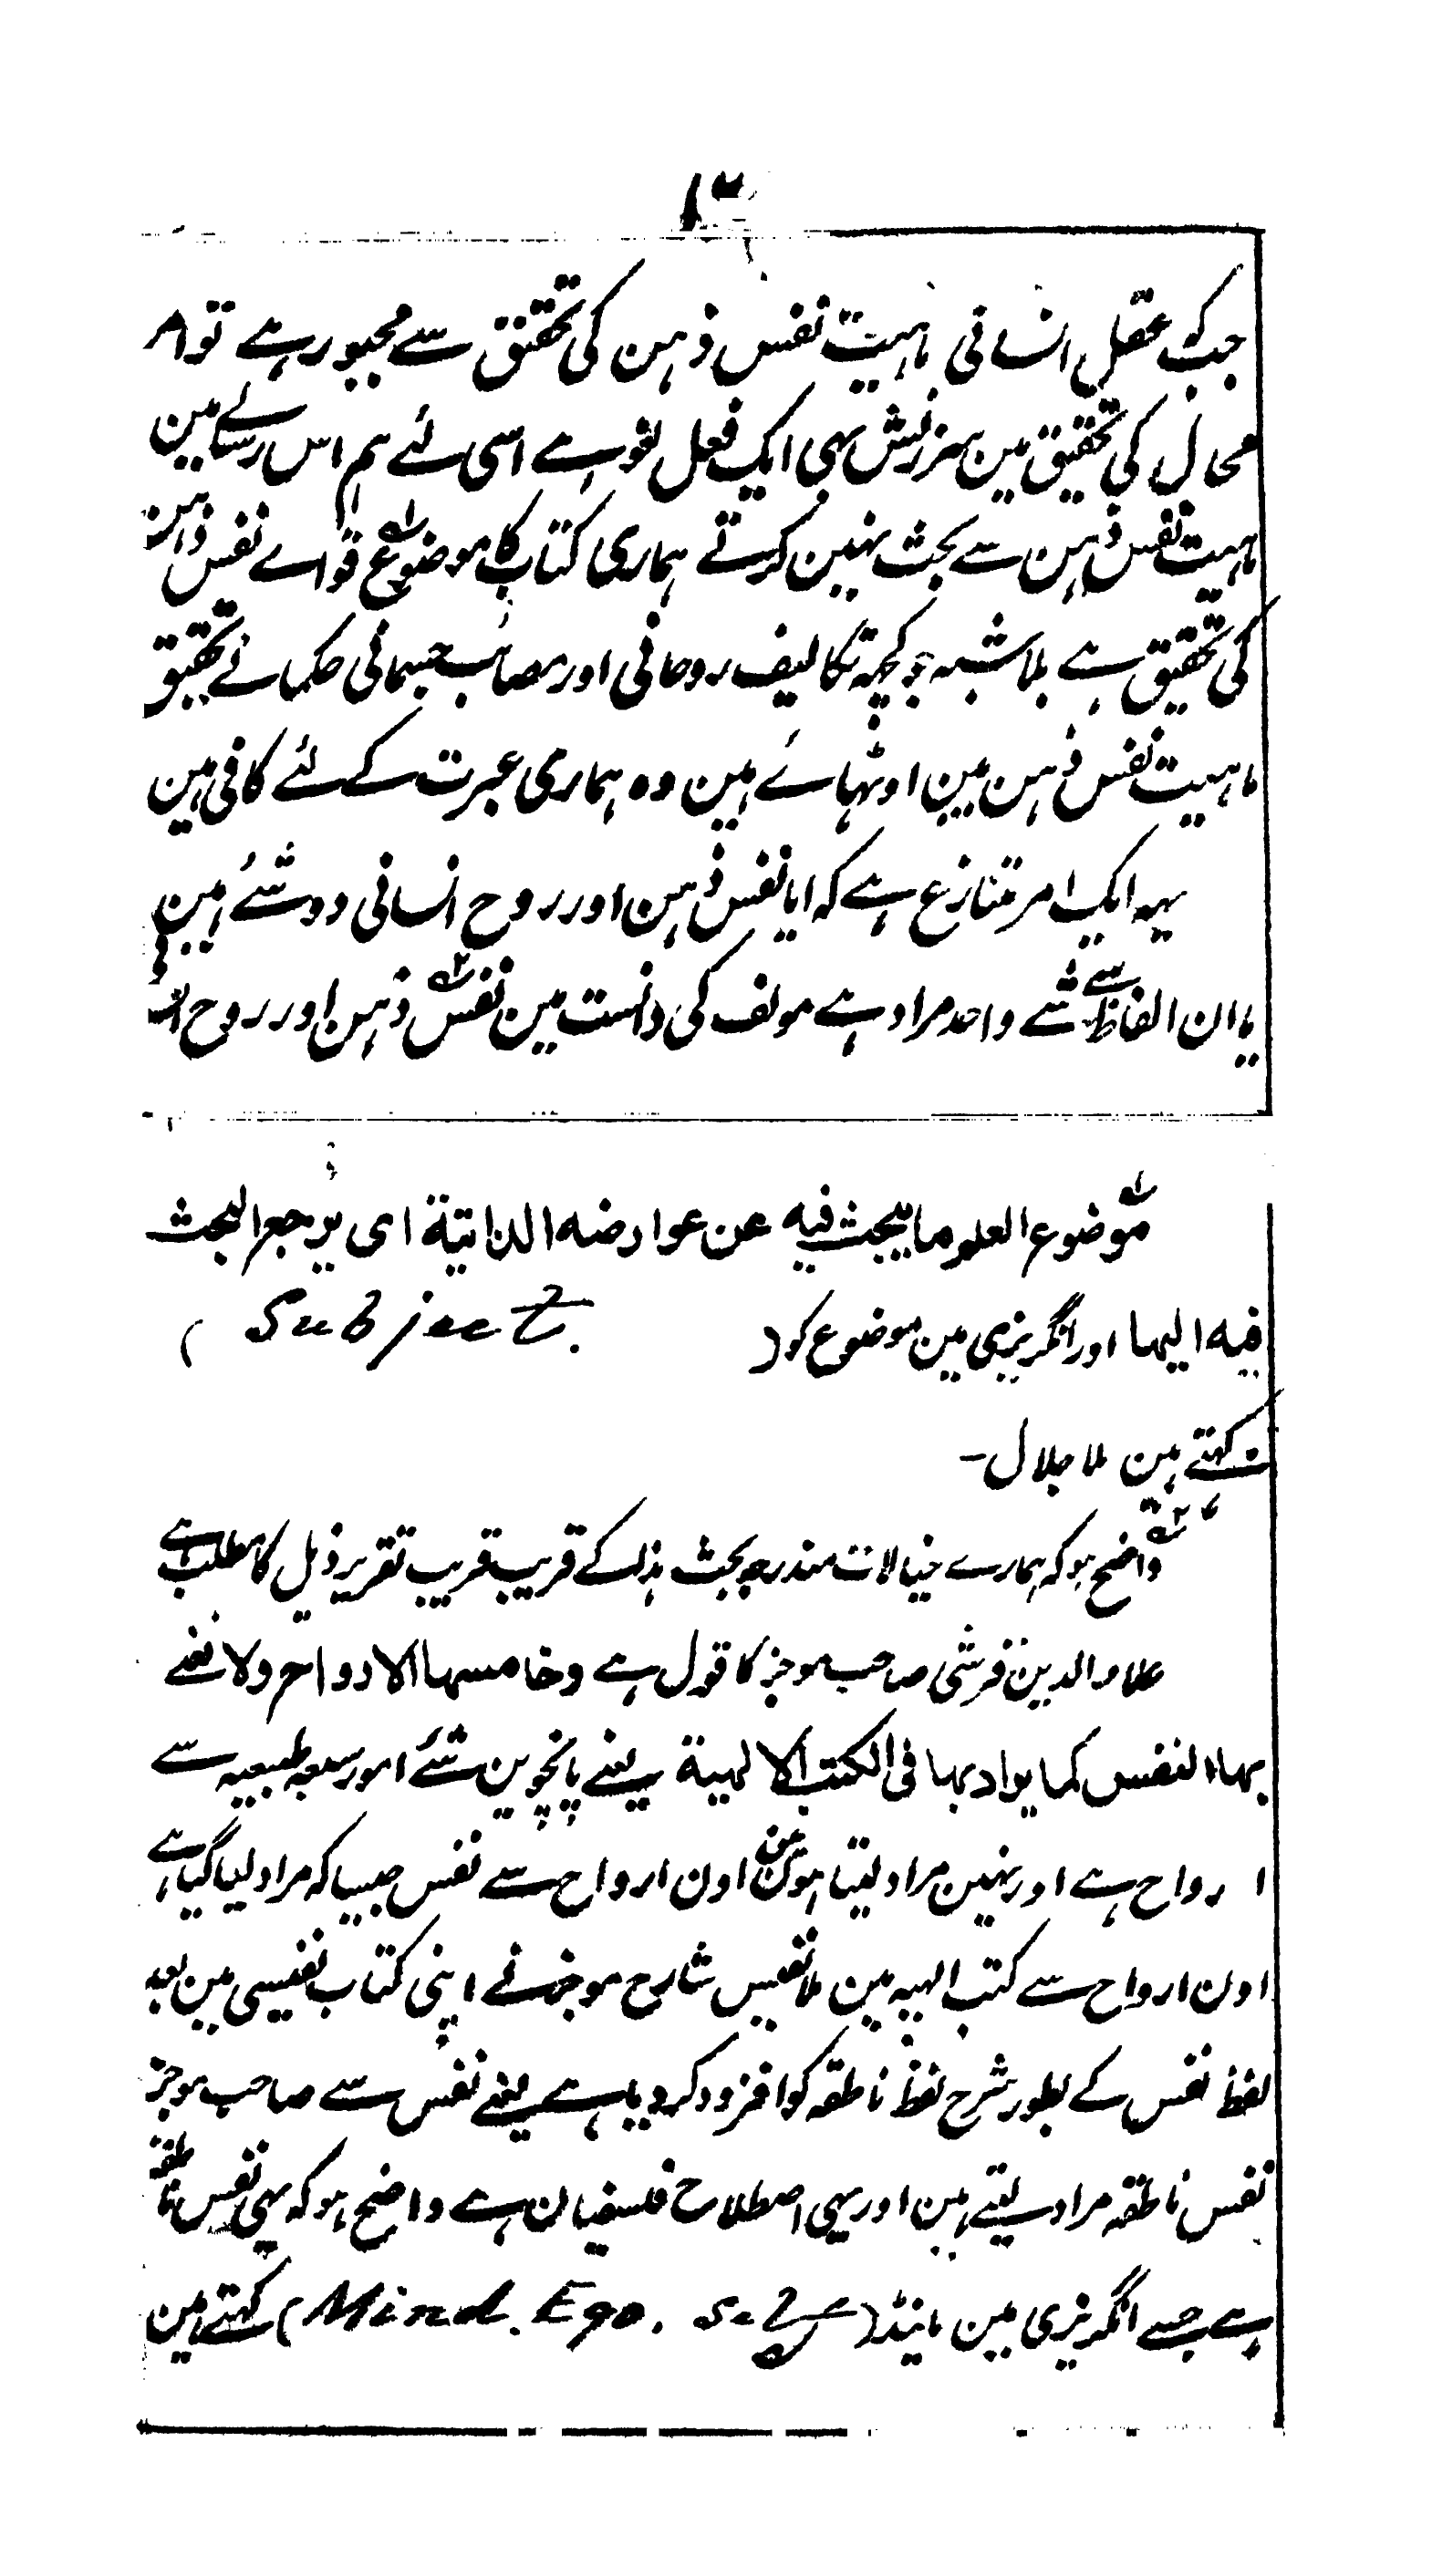 ۱۳
جبکہ عقل انسانی ماہیت نفس ذہن کی تحقیق سے مجبور ہے تو امر
محال کی تحقیق مین سرزنش بہی ایک فعل لغو ہے اسی لئے ہم اس رسالے مین
ماہیت نفس ذہن سے بحث نہین کرتے ہماری کتاب کا موضوع۱؎ قواے نفس ذہن
کی تحقیق ہے بلا شبہ جو کچہہ تکالیف روحانی اور مصائب جسمانی حکمانے تحقیق
ماہیت نفس ذہن مین اوٹہائے ہین وہ ہماری عبرت کے لئے کافی ہین
یہہ ایک امر متنازع ہے کہ ایا نفس ذہن اور روح انسانی دو شئے ہین
یا ان الفاظ سے شے واحد مراد ہے مولف کی دانست مین نفس۲؎ ذہن اور روح
۱؎ موضوع العلوم ما یبحث فیہ عن عوارضہ الذاتیة ای یرجع البحث
فیہ الیہا اور انگریزی مین موضوع کو ( Subject. )
کہتے ہین ملا جلال –
۲؎ واضح ہو کہ ہمارے خیالات مندرجہ بحث ہذا کے قریب قریب تقریر ذیل کا مطلب ہے
علاء الدین قرشی صاحب موجز کا قول ہے وخامسہا الارواح ولا نعنے
بہا النفس کما یراد بہا فی الکتب الالہیة یعنے پانچوین شئے امور سبعہ طبیعیہ سے
ارواح ہے اور نہین مراد لیتا ہون مین اون ارواح سے نفس جیسا کہ مراد لیا گیا ہے
اون ارواح سے کتب الہیہ مین ملا نفیس شارح موجز نے اپنی کتاب نفیسی مین بعد
لفظ نفس کے بطور شرح لفظ ناطقہ کو افزود کر دیا ہے یعنے نفس سے صاحب موجز
نفس ناطقہ مراد لیتے ہین اور یہی اصطلاح فلسفیان ہے واضح ہو کہ یہی نفس ناطقہ
ہے جسے انگریزی مین مائنڈ (Mind. Ego. Self) کہتے ہین